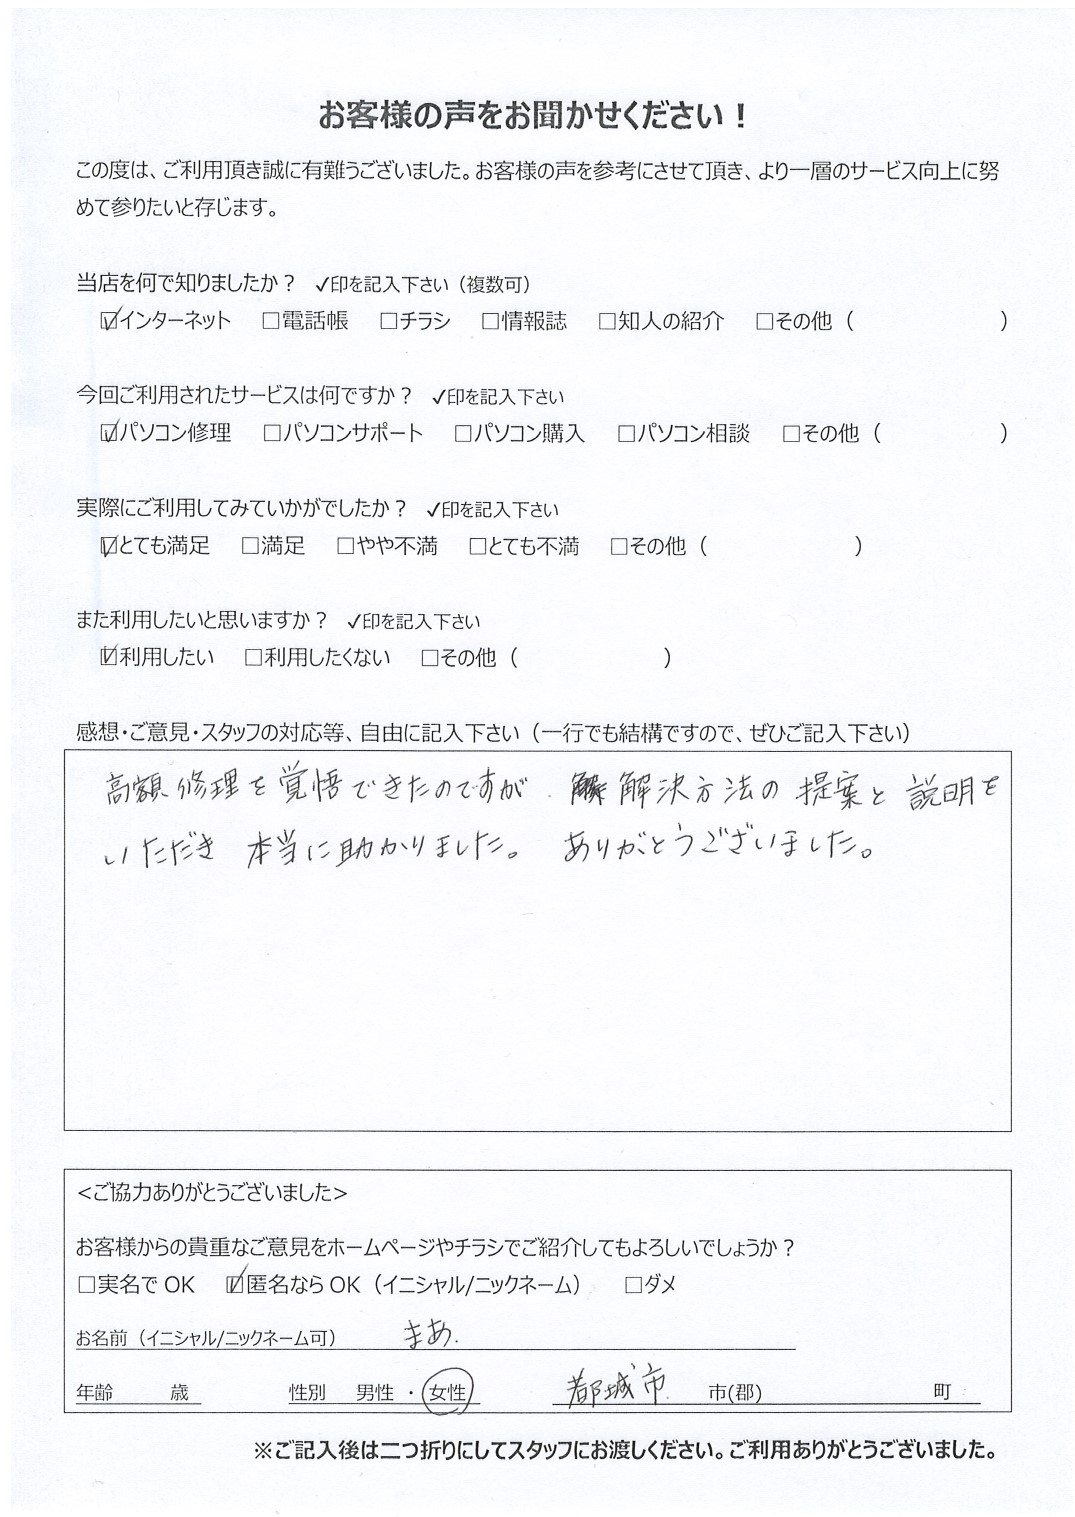 お客様の声をお聞かせください！
この度は、ご利用頂き誠に有難うございました。お客様の声を参考にさせて頂き、より一層のサービス向上に努
めて参りたいと存じます。
当店を何で知りましたか？ ✓印を記入下さい（複数可）
☑インターネット □電話帳 □チラシ □情報誌 □知人の紹介 □その他（ ）
今回ご利用されたサービスは何ですか？ ✓印を記入下さい
☑パソコン修理 □パソコンサポート □パソコン購入 □パソコン相談 □その他（ ）
実際にご利用してみていかがでしたか？ ✓印を記入下さい
☑とても満足 □満足 □やや不満 □とても不満 □その他（ ）
また利用したいと思いますか？ ✓印を記入下さい
☑利用したい □利用したくない □その他（ ）
感想・ご意見・スタッフの対応等、自由に記入下さい（一行でも結構ですので、ぜひご記入下さい）
高額修理を覚悟できたのですが、解決方法の提案と説明を
いただき 本当に助かりました。 ありがとうございました。
<ご協力ありがとうございました>
お客様からの貴重なご意見をホームページやチラシでご紹介してもよろしいでしょうか？
□実名で OK ☑匿名なら OK（イニシャル/ニックネーム） □ダメ
お名前（イニシャル/ニックネーム可） まあ.
年齢 歳 性別 男性 ・ 女性 都城市 市(郡) 町
※ご記入後は二つ折りにしてスタッフにお渡しください。ご利用ありがとうございました。